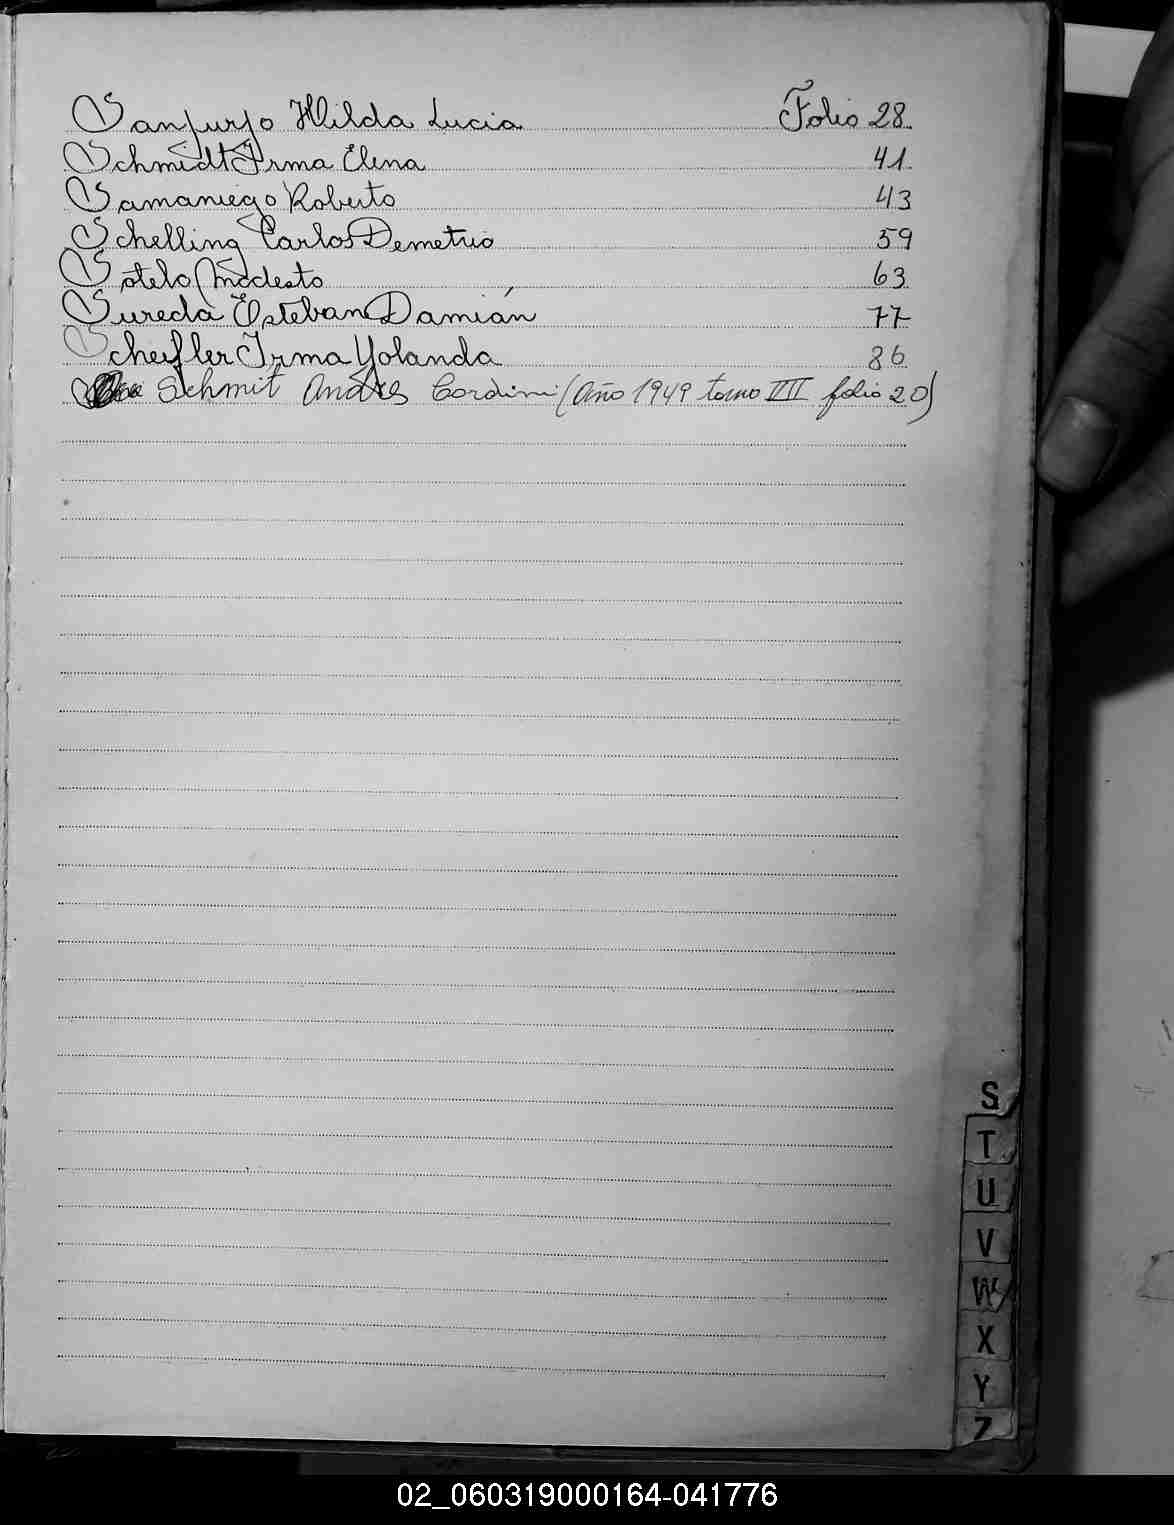 Sanjurjo Hilda Lucia Folio 28
Schmidt Irma Elena 41
Samaniego Roberto 43
Schelling Carlos Demetrio 59
Sotelo Modesto 63
Sureda Esteban Damián 77
Scheifler Irma Yolanda 86
Schmit Andres Cordini (Año 1949 tomo III folio 20)
S
T
U
V
W
X
Y
Z
02_060319000164-041776